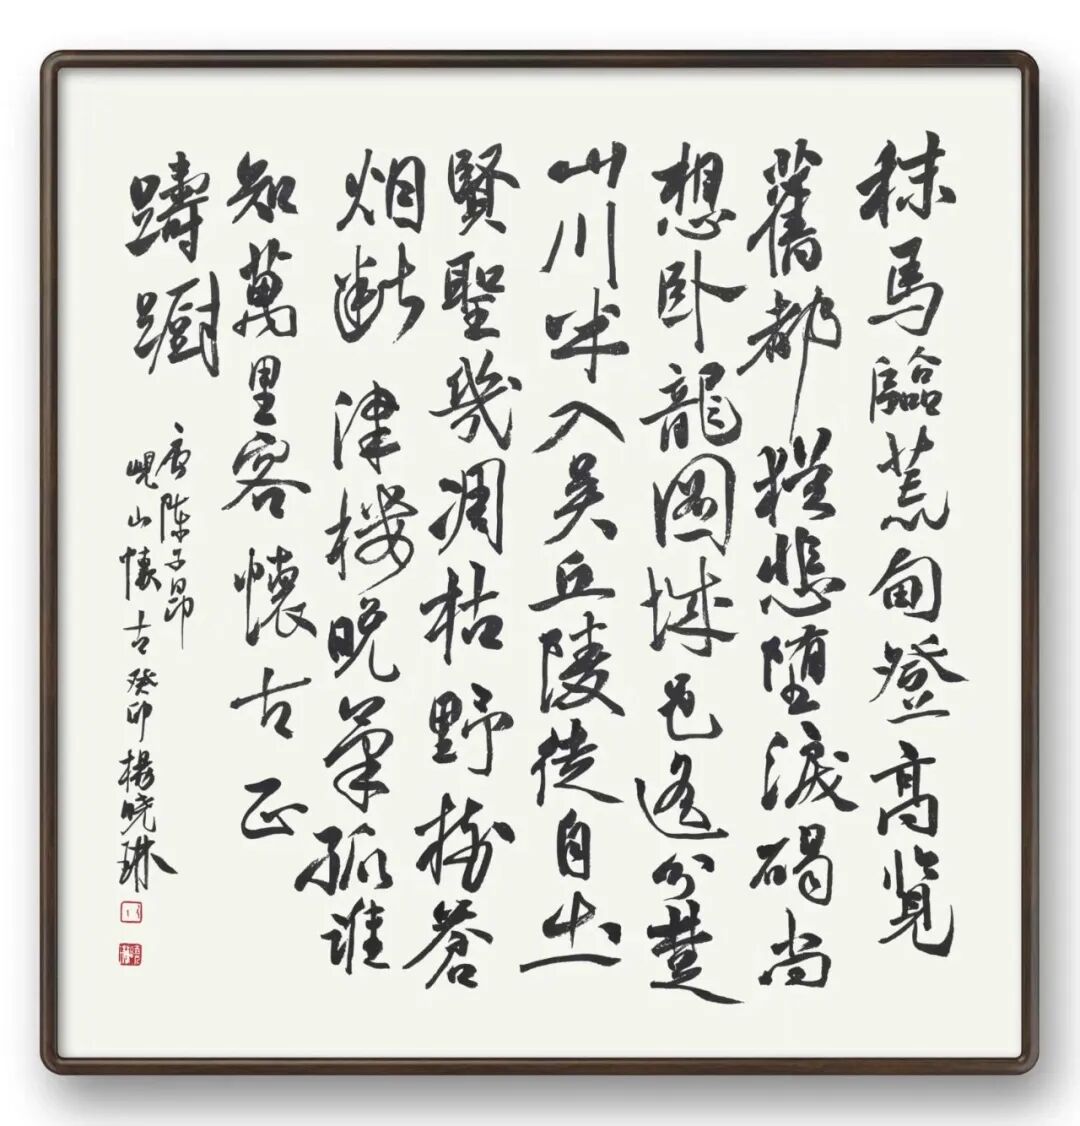 秣馬臨荒甸登高覽
舊都猶悲堕淚碣尚
想卧龍圖城邑遙分楚
山川半入吴丘陵徒自出
賢聖幾凋枯野樹蒼
烟断津樓晚氣孤誰
知萬里客懷古正
躊蹰
唐陈子昂
峴山懷古癸卯楊晓琳